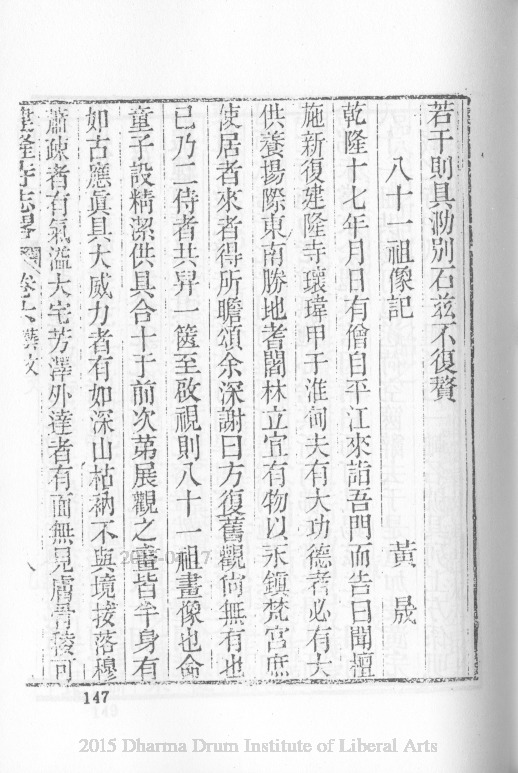 若干則具泐別石茲不復贅
八十一祖像記
黃晟
乾隆十七年月日有僧自平江來詣吾門而告曰聞檀
施新復建隆寺瓌瑋甲于淮甸夫有大功德者必有大
供養揚際東南勝地者闍林立宜有物以永鎮梵宮庶
使居者來者得所瞻頌余深謝曰方復舊觀尙無有也
已乃二侍者共舁一篋至啟視則八十一祖畫像也命
童子設精潔供具合十于前次第展觀之畫皆半身有
如古應眞具大威力者有如深山枯衲不與境接落穆
蕭疎者有氣溢大宅芳澤外達者有面無見膚骨稜可
建隆寺志畧 卷之 譔文 八
147
2015 Dharma Drum Institute of Liberal Arts